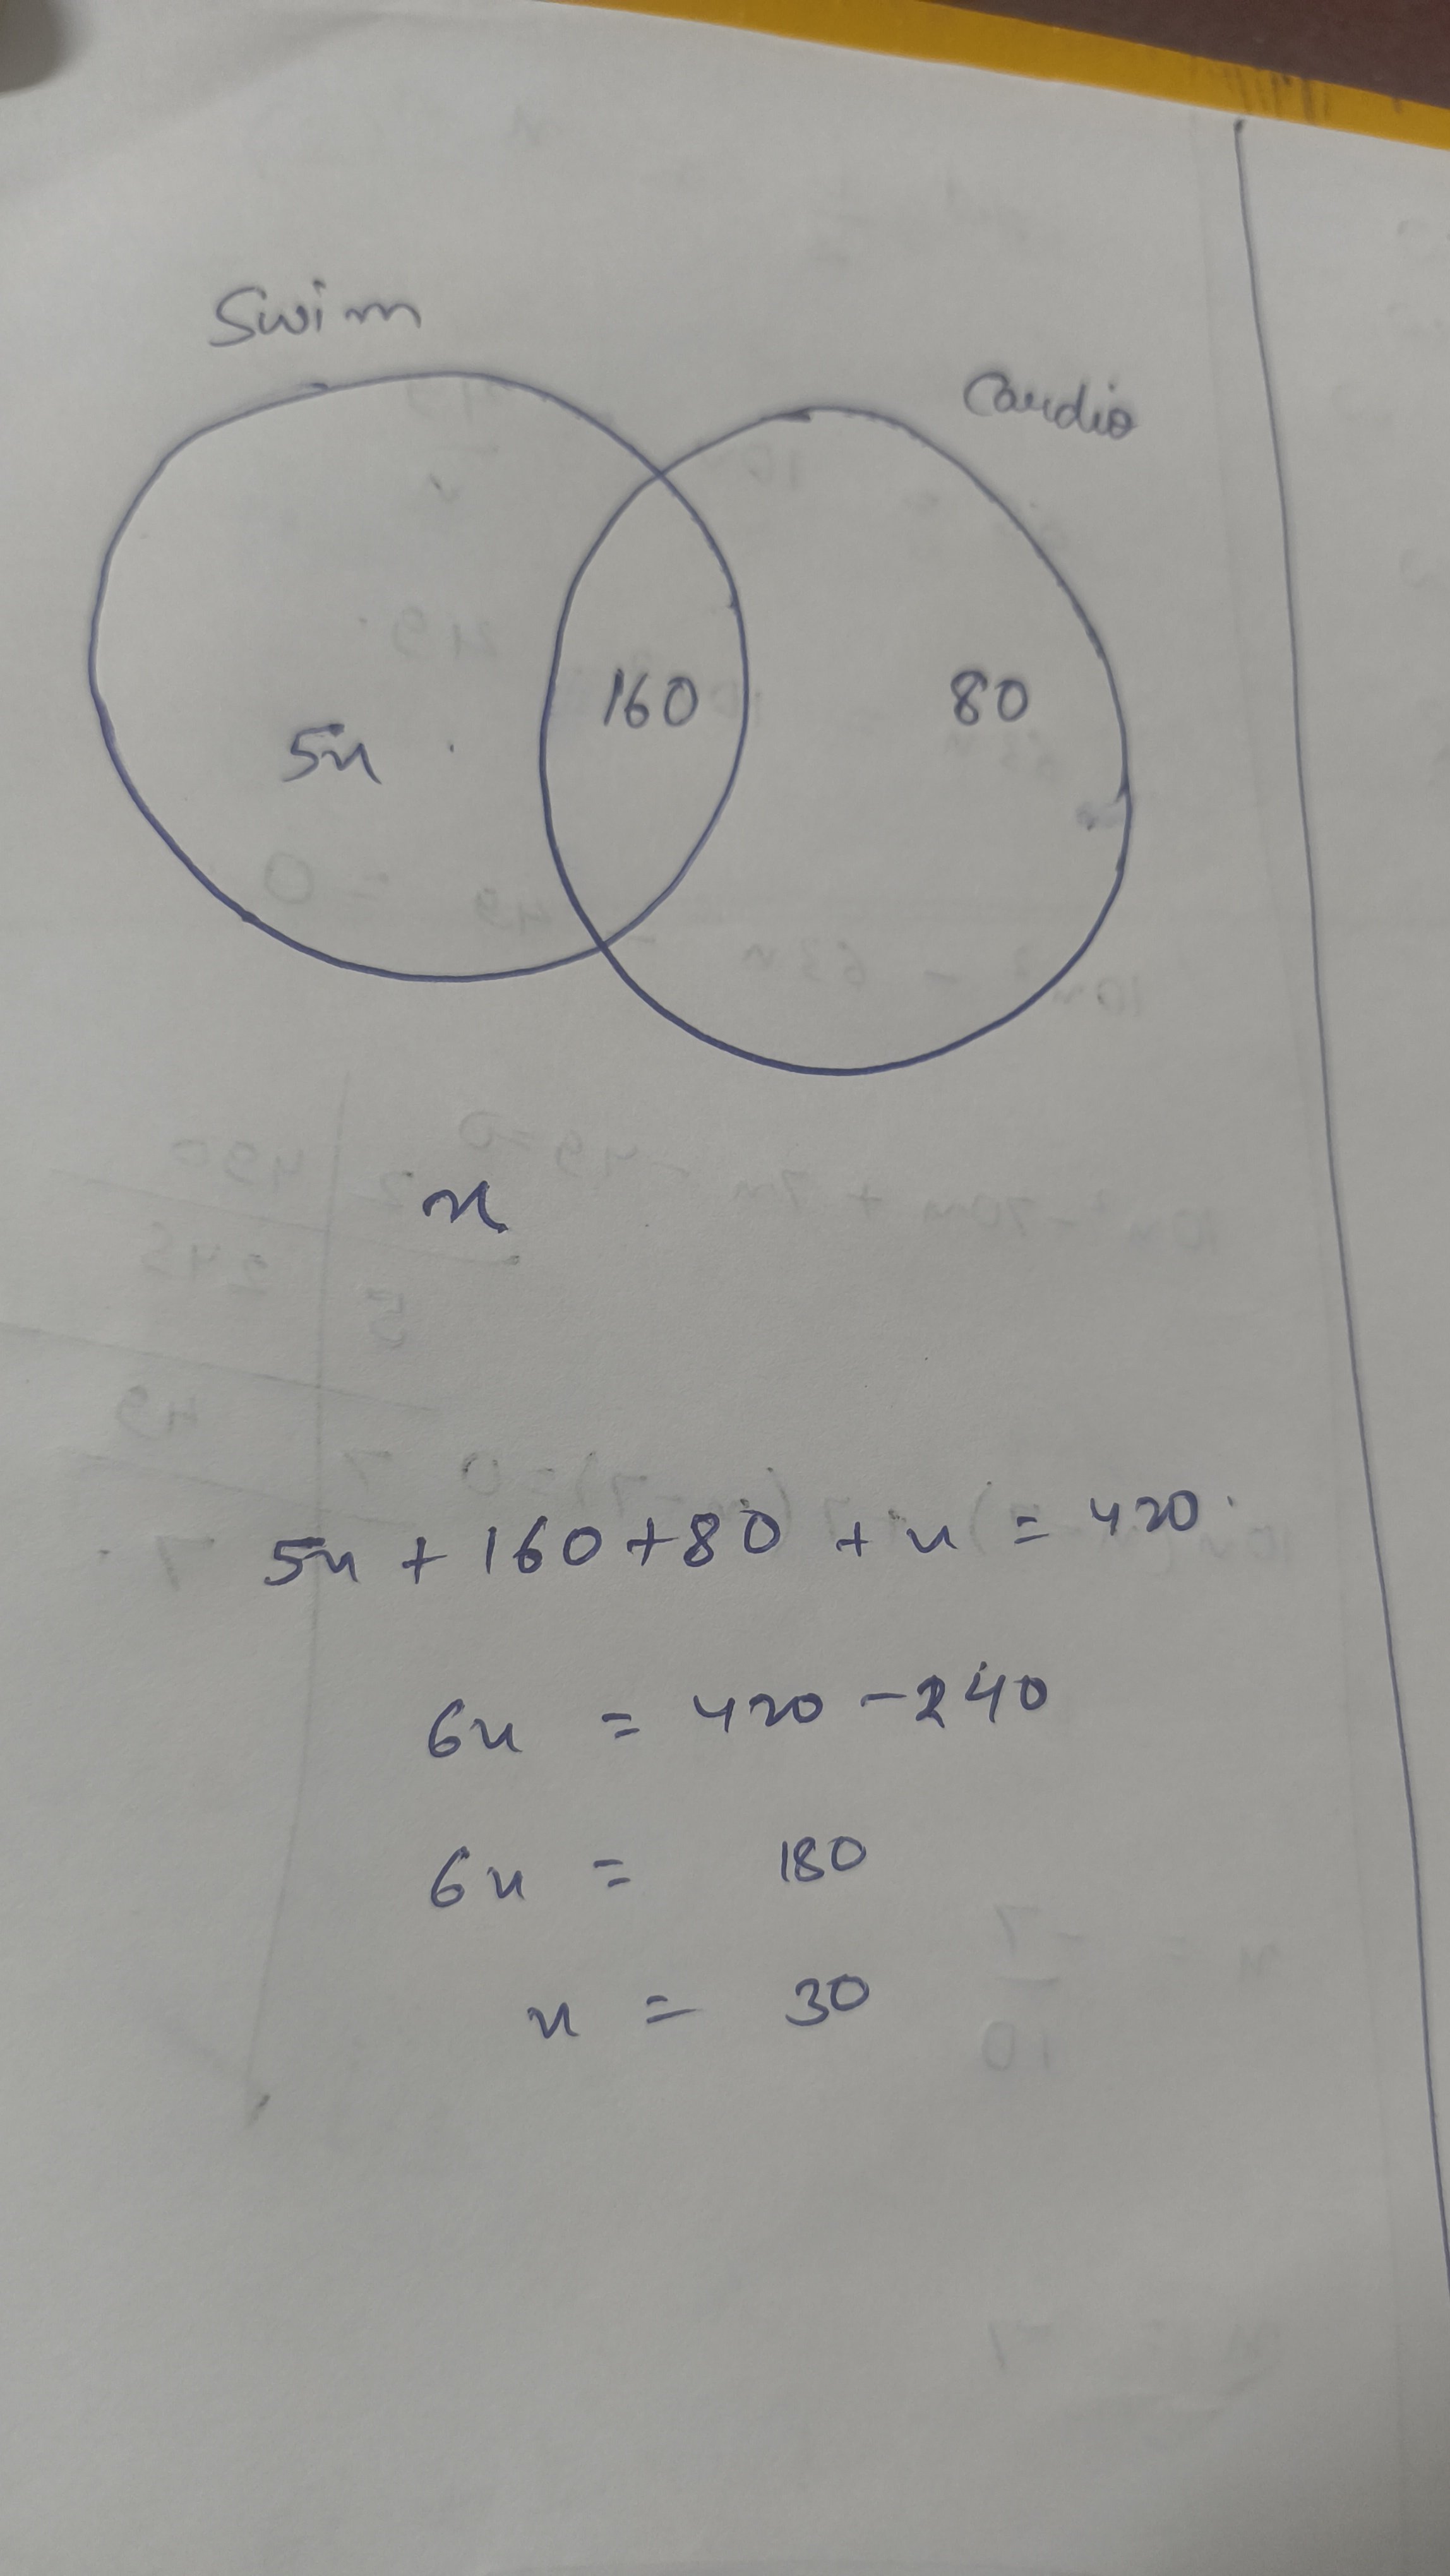 Swim
Cardio
5x
160
80
x
5x + 160 + 80 + x = 420
6x = 420 - 240
6x = 180
x = 30